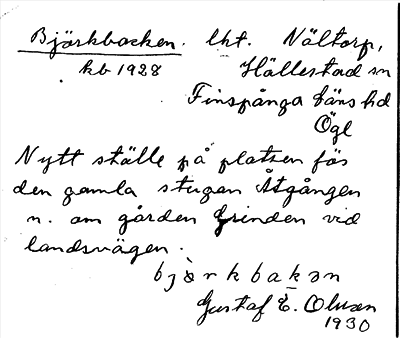 Björkbacken. lht. Nältorp,
kb 1928 Hällestad sn
Finspånga läns hd
Ögl
Nytt ställe på platsen för
den gamla stugan Åtgången
n. om gården Grinden vid
landsvägen.
bjȧrkbakən
Gustaf E. Olsson
1930